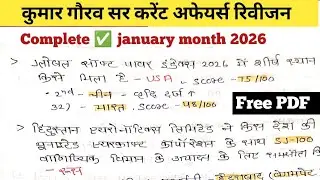 कुमार गौरव सर करेंट अफेयर्स रिवीजन
Complete ✅ january month 2026
> ग्लोबल सॉफ्ट पावर इंडेक्स 2026 में शीर्ष स्थान
किसे मिला है - USA, score - 75/100
2nd - चीन -
32) - भारत, score - 48/100
Free PDF
> हिंदुस्तान एयरोनॉटिक्स लिमिटेड ने किस देश की
एयरक्राफ्ट कॉर्पोरेशन के साथ SJ-100
विमान के के लिए
- रूस